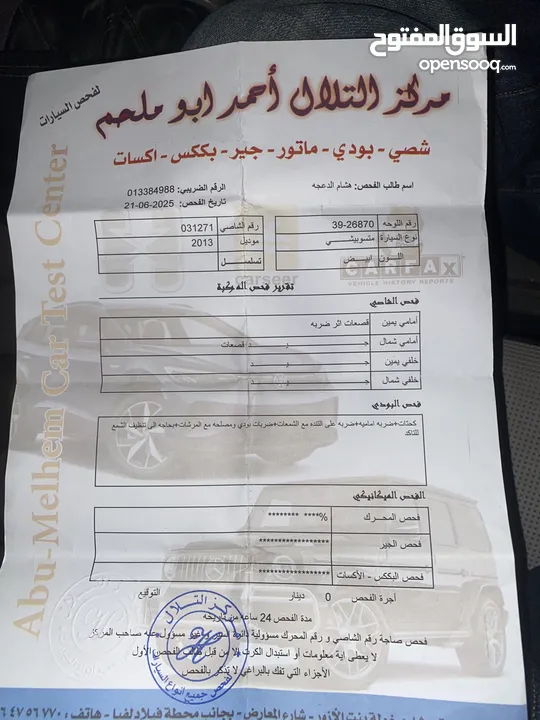 السوق المفتوح
opensooq.com
مركز التلال أحمد ابو ملحم
لفحص السيارات
شصي - بودي - ماتور - جير - بككس - اكسات
Abu-Melhem Car Test Center
اسم طالب الفحص: هشام الدعجه
الرقم الضريبي: 013384988
تاريخ الفحص: 21-06-2025
رقم اللوحه 39-26870
رقم الشاصي 031271
نوع السيارة متسوبيشي
موديل 2013
اللون ابيض
تسلسل
carseer
CARFAX
VEHICLE HISTORY REPORTS
تقرير فحص المركبة
فحص الشاصي
أمامي يمين قصعات اثر ضربه
أمامي شمال جيد قصعات
خلفي يمين جيد
خلفي شمال جيد
فحص البودي
كحتات+ضربه اماميه+ضربه على التنده مع الشمعات+ضربات بودي ومصلحه مع المرشات+بحاجه الى تنظيف الشمع
للتاكد
الفحص الميكانيكي
فحص المحرك %**** ********
فحص الجير *****************
فحص البككس - الأكسات *****************
أجرة الفحص 0 دينار
التوقيع
مدة الفحص 24 ساعه من تاريخه
فحص صلاحية رقم الشاصي و رقم المحرك مسؤولية دائرة السير وغير مسؤول عنه صاحب المركز
لا يعطى اية معلومات أو استبدال الكرت إلا من قبل طالب الفحص الأول
الأجزاء التي تفك بالبراغي لا تذكر بالفحص
مركز التلال
لفحص جميع انواع السيارات
شارع المعارض - بجانب محطة فيلادلفيا - هاتف: